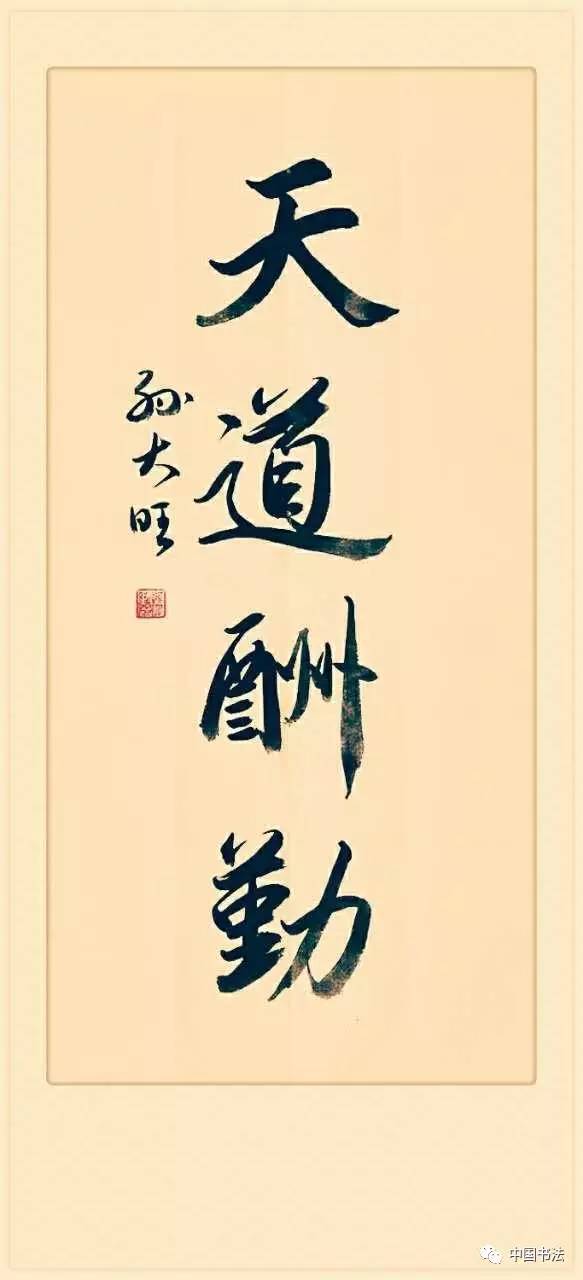 天道酬勤
孙大旺
中国书法